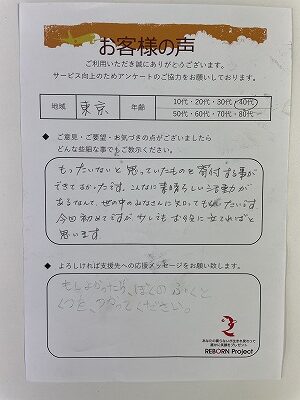 お客様の声
ご利用いただき誠にありがとうございます。
サービス向上のためアンケートのご協力をお願いしております。
地域 東京 年齢 10代・20代・30代・40代・
50代・60代・70代・80代~
◆ ご意見・ご要望・お気づきの点がございましたら
どんな些細な事でもご教示ください。
もったいないと思っていたものを寄付する事が
できてよかったです。こんなに素晴らしい活動が
あるなんて、世の中のみなさんに知ってもらいたいです
今回初めてですが少しでもお役に立てればと
思います
◆ よろしければ支援先への応援メッセージをお願い致します。
もしよかったら、ぼくの ふくと
くつを、つかってください。
あなたの要らないが生き変わって
誰かに笑顔をプレゼント
REBORN Project